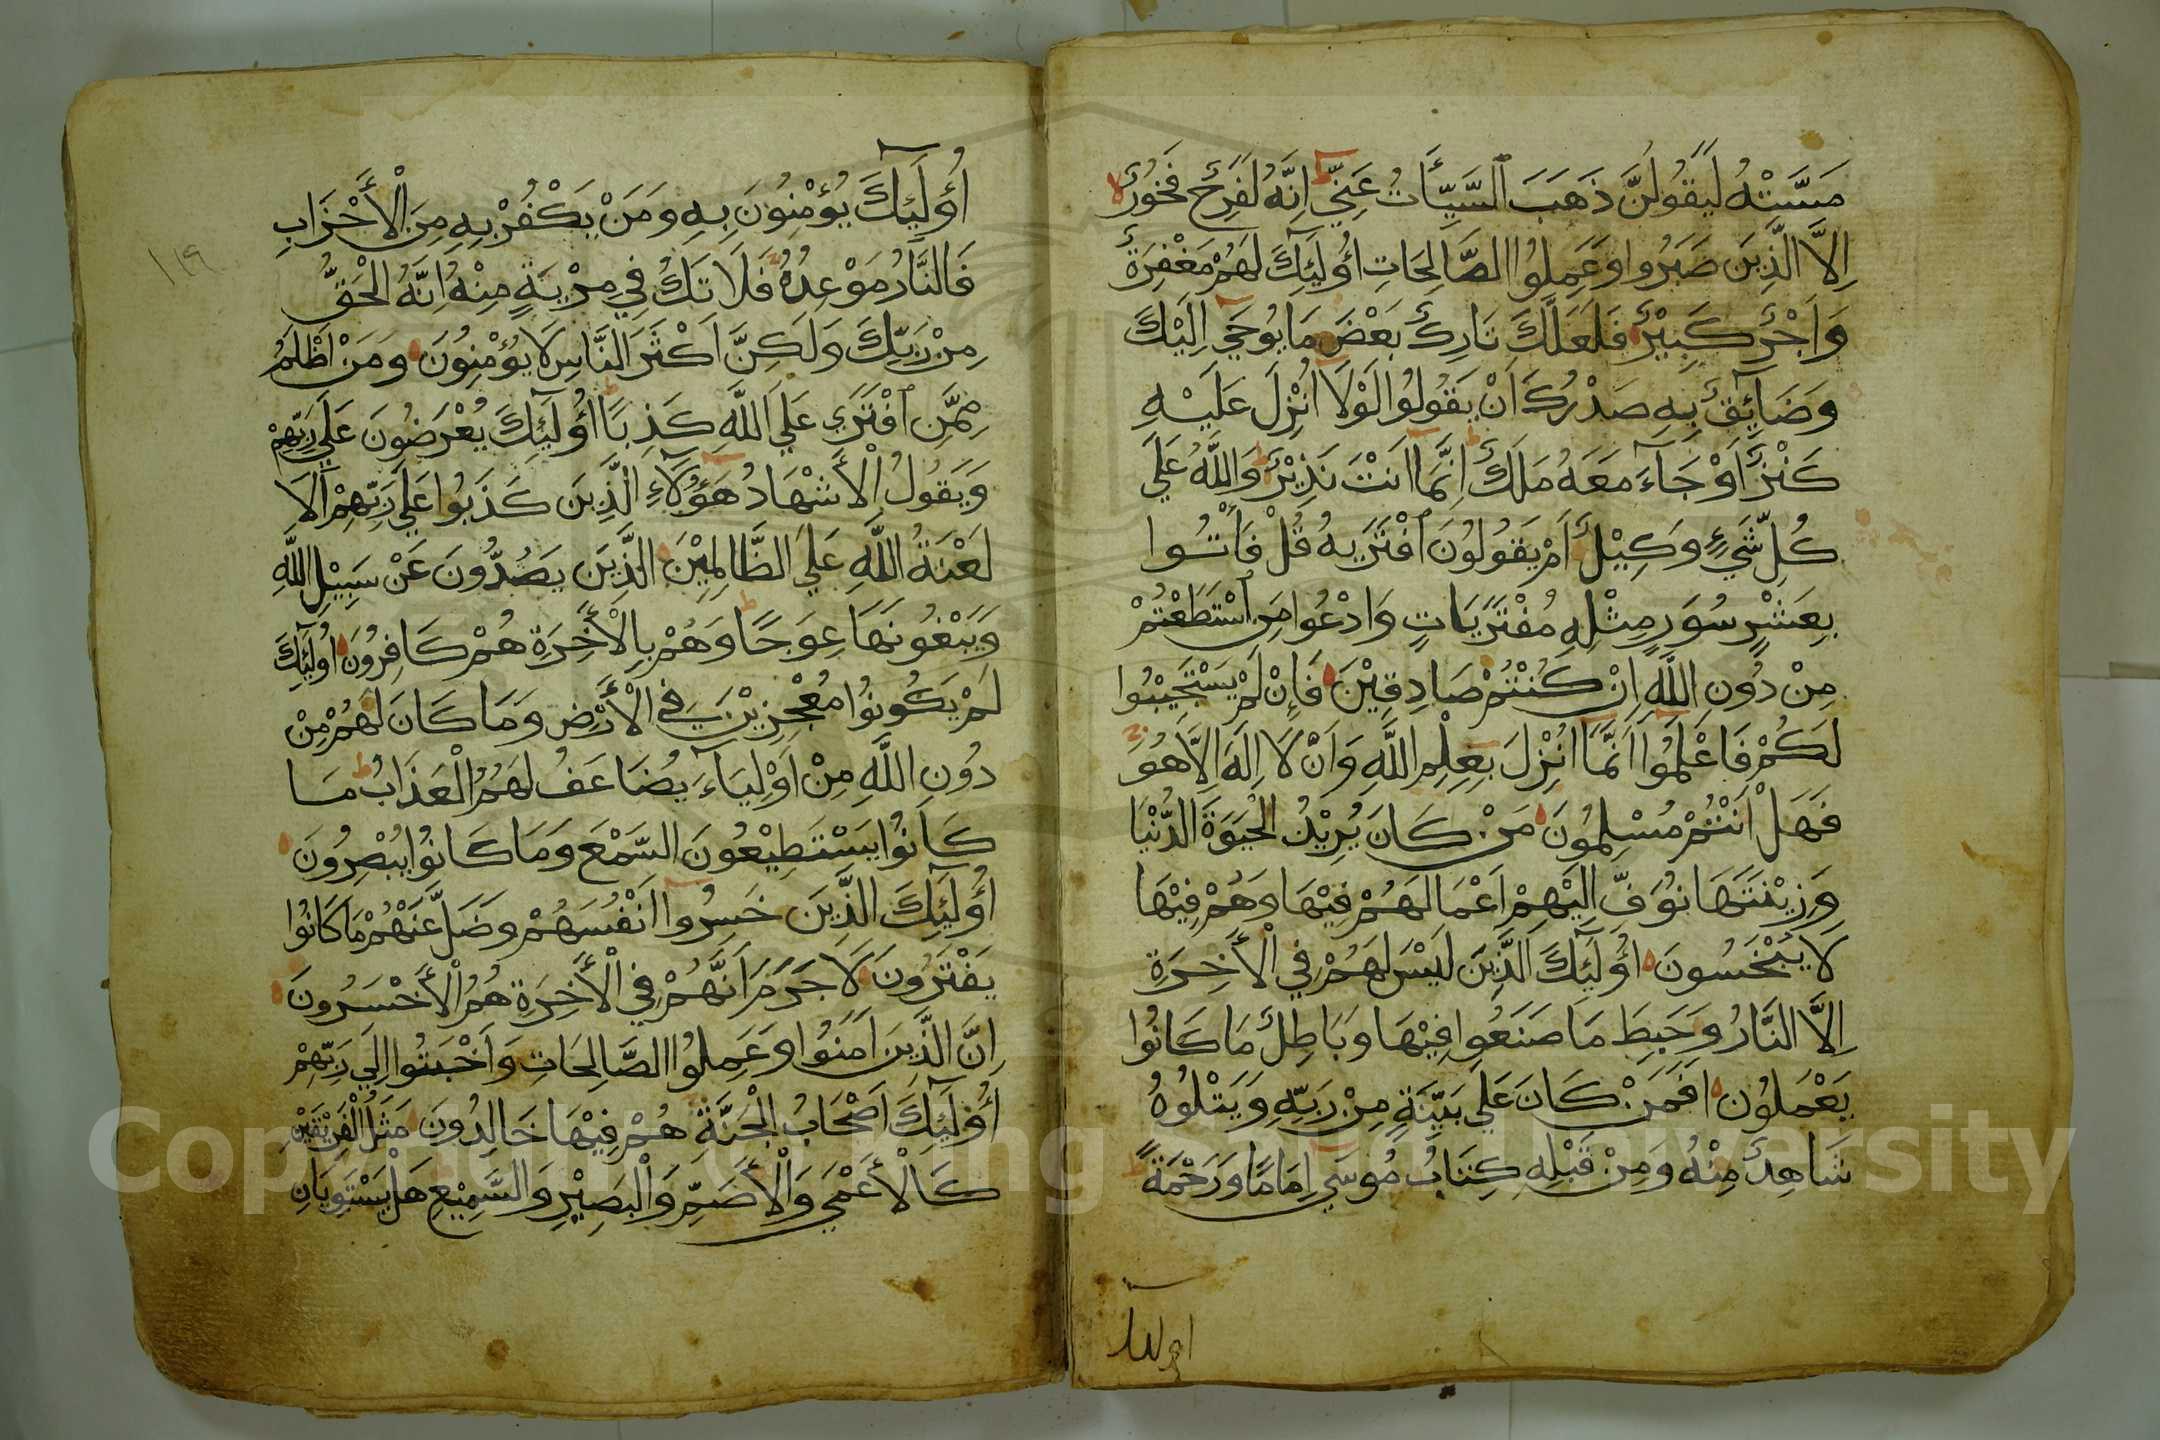 مَسَّتْهُ لَيَقُولَنَّ ذَهَبَ ٱلسَّيِّأَتُ عَنِّي اِنَّهُ لَفَرِحٌ فَخُوْرٌ لا
اِلَّا الَّذِيْنَ صَبَرُوا وَعَمِلُوا الصَّالِحَاتِ اُولَٓئِكَ لَهُمْ مَغْفِرَةٌ
وَاَجْرٌ كَبِيْرٌ فَلَعَلَّكَ تَارِكٌ بَعْضَ مَا يُوحَي اِلَيْكَ
وَضَآئِقٌ بِهِ صَدْرُكَ اَنْ يَقُولُوا لَوْلَا اُنْزِلَ عَلَيْهِ
كَنْزٌ اَوْ جَآءَ مَعَهُ مَلَكٌ ط اِنَّمَا اَنْتَ نَذِيْرٌ ط وَاللَّهُ عَلَي
كُلِّ شَيْءٍ وَكِيْلٌ اَمْ يَقُولُوْنَ ٱفْتَرَيهُ قُلْ فَأْتُوا
بِعَشْرِ سُوَرٍ مِثْلِهِ مُفْتَرَيَاتٍ وَادْعُوا مَنِ ٱسْتَطَعْتُمْ
مِنْ دُونِ اللَّهِ اِنْ كُنْتُمْ صَادِقِيْنَ فَاِنْ لَمْ يَسْتَجِيْبُوا
لَكُمْ فَاعْلَمُوا اَنَّمَا اُنْزِلَ بِعِلْمِ اللَّهِ وَاَنْ لَا اِلَهَ اِلَّا هُوَ
فَهَلْ اَنْتُمْ مُسْلِمُونَ مَنْ كَانَ يُرِيْدُ الْحَيَوةَ الدُّنْيَا
وَزِيْنَتَهَا نُوَفِّ اِلَيْهِمْ اَعْمَالَهُمْ فِيْهَا وَهُمْ فِيْهَا
لَا يُبْخَسُونَ اُولَٓئِكَ الَّذِيْنَ لَيْسَ لَهُمْ فِي الْأَخِرَةِ
اِلَّا النَّارُ وَحَبِطَ مَا صَنَعُوا فِيْهَا وَبَاطِلٌ مَا كَانُوا
يَعْمَلُونَ اَفَمَنْ كَانَ عَلَي بَيِّنَةٍ مِنْ رَبِّهِ وَيَتْلُوهُ
شَاهِدٌ مِنْهُ وَمِنْ قَبْلِهِ كِتَابُ مُوسَي اِمَامًا وَرَحْمَةً ط
اولئك
اُولَٓئِكَ يُؤْمِنُونَ بِهِ وَمَنْ يَكْفُرْ بِهِ مِنَ الْأَحْزَابِ
فَالنَّارُ مَوْعِدُهُ فَلَا تَكُ فِي مِرْيَةٍ مِنْهُ اِنَّهُ الْحَقُّ
مِنْ رَبِّكَ وَلَكِنَّ اَكْثَرَ النَّاسِ لَا يُؤْمِنُونَ وَمَنْ اَظْلَمُ
مِمَّنِ ٱفْتَرَي عَلَي اللَّهِ كَذِبًا ط اُولَٓئِكَ يُعْرَضُونَ عَلَي رَبِّهِمْ
وَيَقُولُ الْأَشْهَادُ هَؤُلَآءِ الَّذِيْنَ كَذَبُوا عَلَي رَبِّهِمْ اَلَا
لَعْنَةُ اللَّهِ عَلَي الظَّالِمِيْنَ الَّذِيْنَ يَصُدُّونَ عَنْ سَبِيْلِ اللَّهِ
وَيَبْغُونَهَا عِوَجًا ط وَهُمْ بِالْأَخِرَةِ هُمْ كَافِرُونَ اُولَٓئِكَ
لَمْ يَكُونُوا مُعْجِزِيْنَ فِي الْأَرْضِ وَمَا كَانَ لَهُمْ مِنْ
دُونِ اللَّهِ مِنْ اَوْلِيَآءَ يُضَاعَفُ لَهُمُ الْعَذَابُ ط مَا
كَانُوا يَسْتَطِيْعُونَ السَّمْعَ وَمَا كَانُوا يُبْصِرُونَ
اُولَٓئِكَ الَّذِيْنَ خَسِرُوا اَنْفُسَهُمْ وَضَلَّ عَنْهُمْ مَا كَانُوا
يَفْتَرُونَ لَا جَرَمَ اَنَّهُمْ فِي الْأَخِرَةِ هُمُ الْأَخْسَرُونَ
اِنَّ الَّذِيْنَ اَمَنُوا وَعَمِلُوا الصَّالِحَاتِ وَاَخْبَتُوا اِلَي رَبِّهِمْ
اُولَٓئِكَ اَصْحَابُ الْجَنَّةِ هُمْ فِيْهَا خَالِدُونَ مَثَلُ الْفَرِيْقَيْنِ
كَالْأَعْمَي وَالْأَصَمِّ وَالْبَصِيْرِ وَالسَّمِيْعِ هَلْ يَسْتَوِيَانِ
١١٩
Copyright © King Saud University